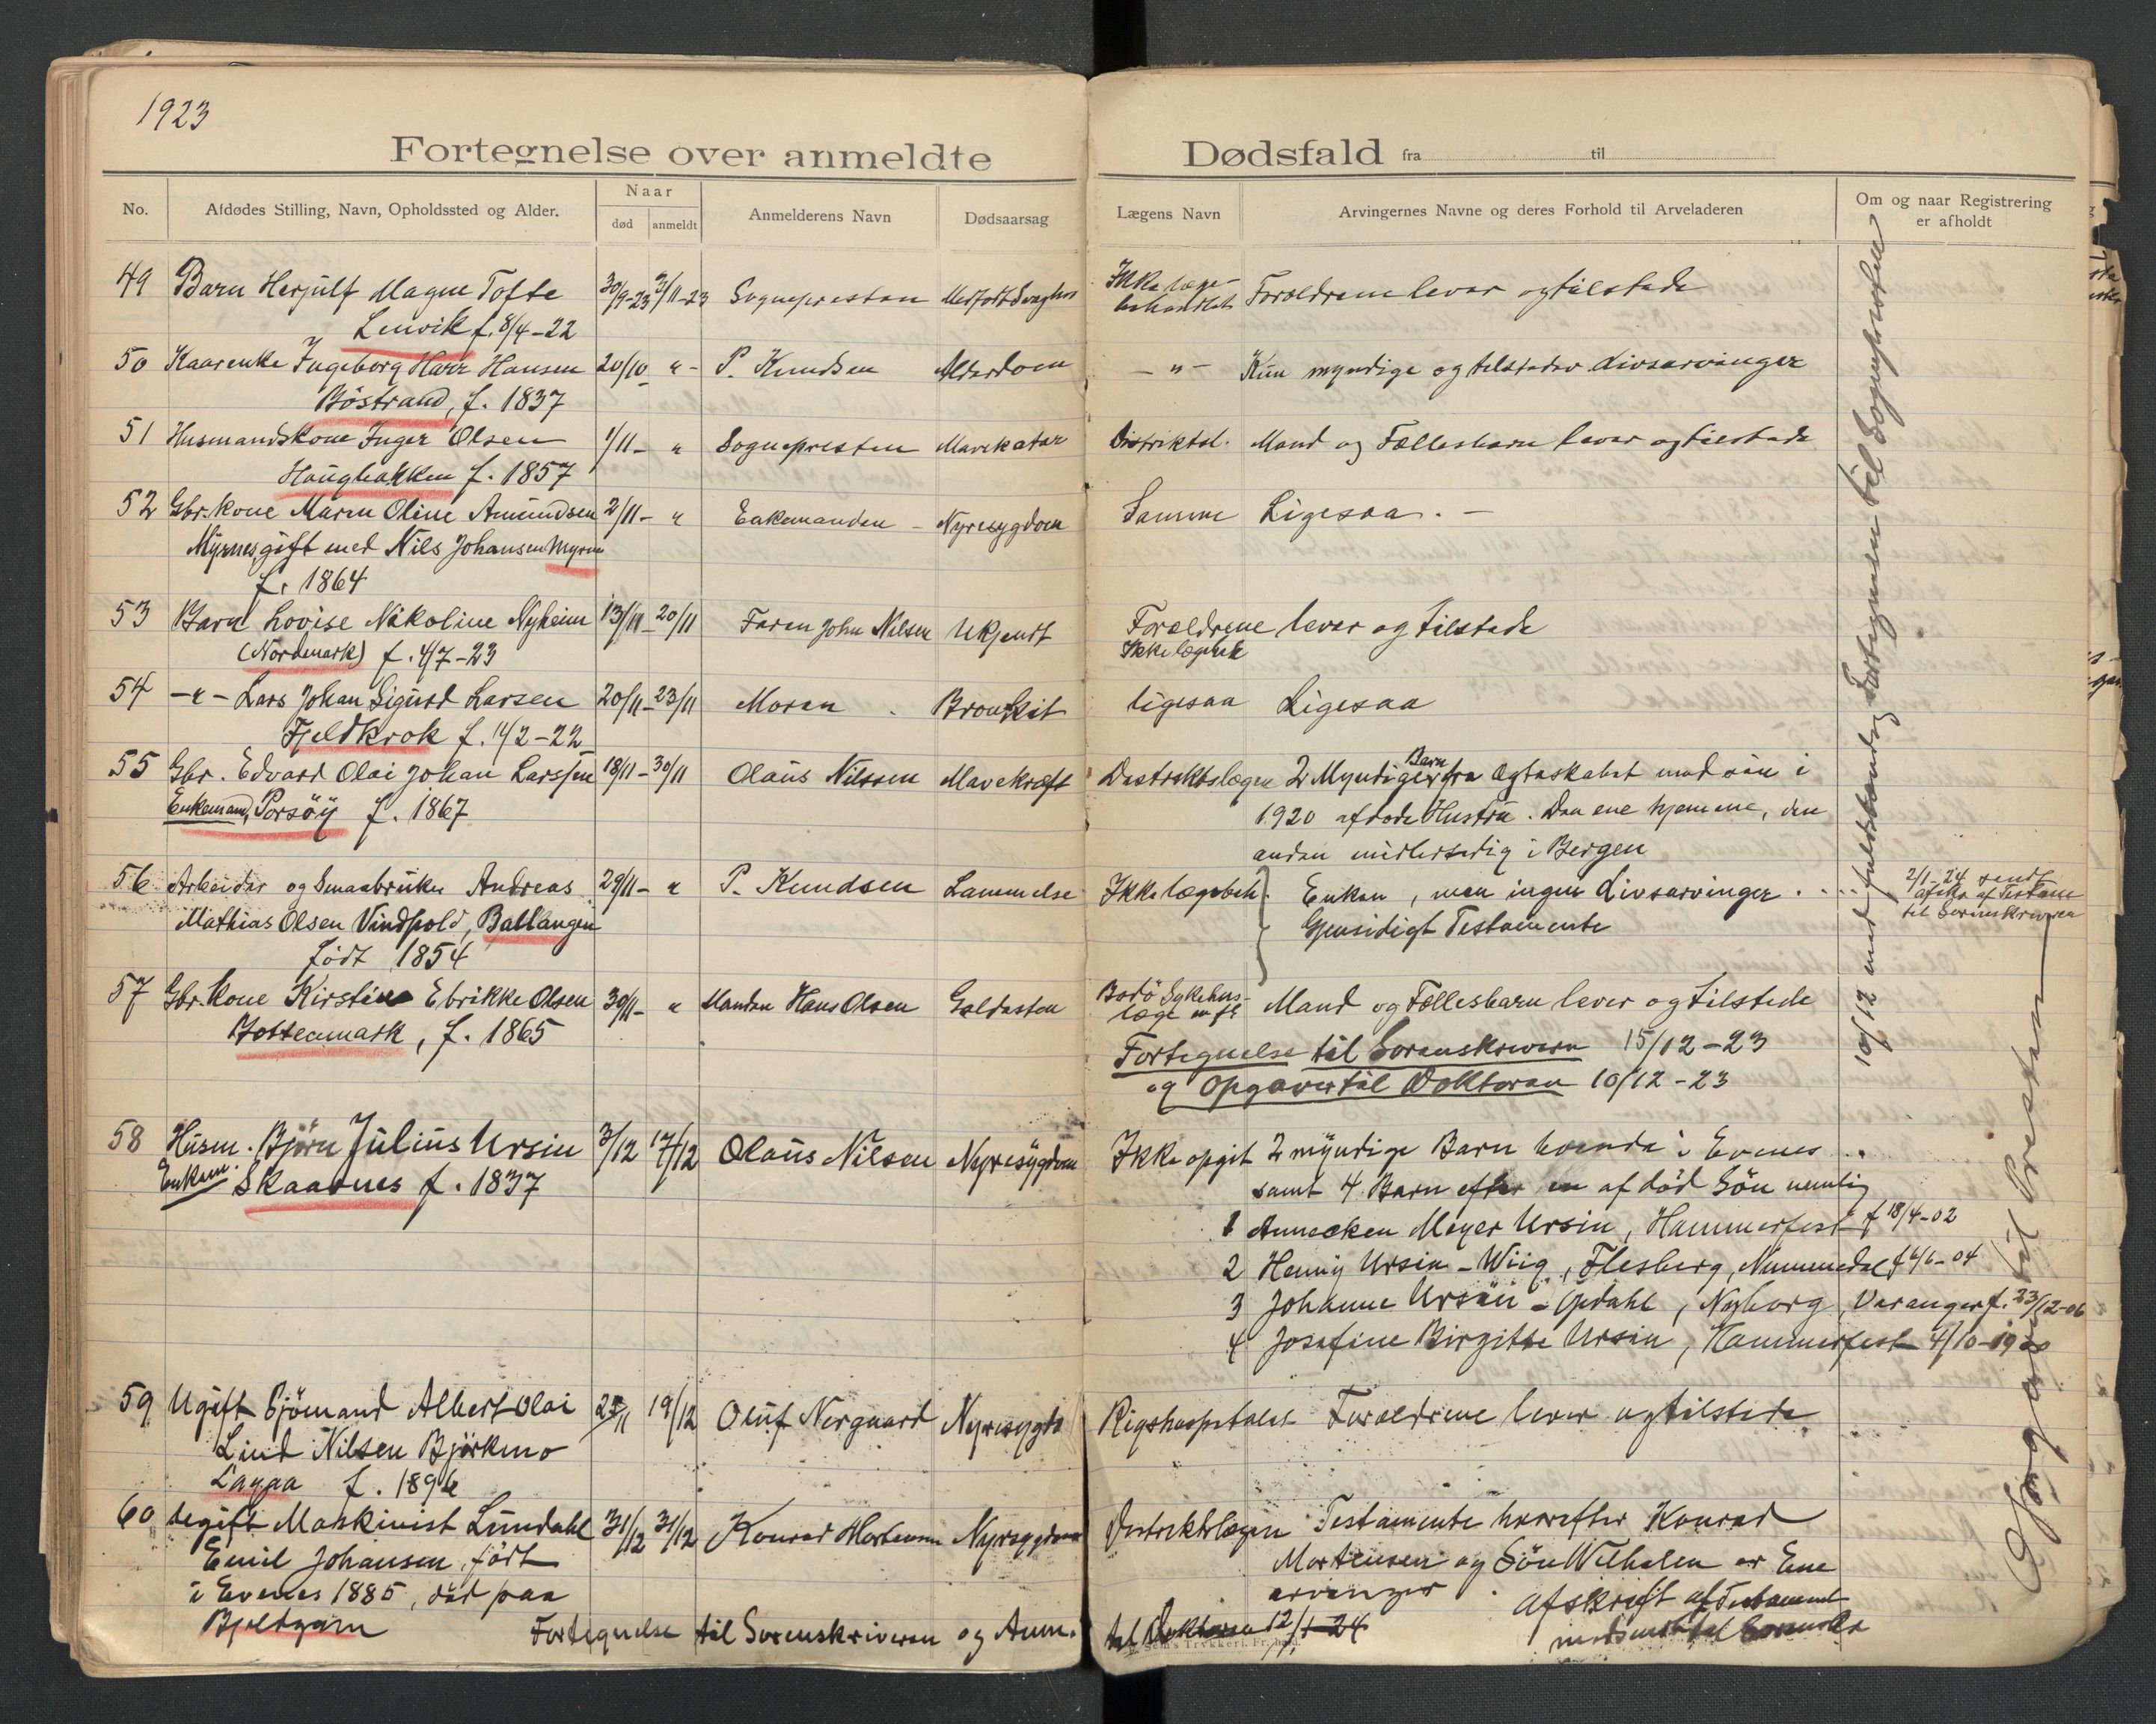 1923
Fortegnelse over anmeldte Dødsfald fra til
No. Afdødes Stilling, Navn, Opholdssted og Alder. Naar død anmeldt Anmelderens Navn Dødsaarsag Lægens Navn Arvingernes Navne og deres Forhold til Arveladeren Om og naar Registrering er afholdt
49 Barn Herjulf Magne Tofte 30/9-23 3/11-23 Sognepresten Medfødt Svaghet Ikke læge- Forældrene lever og tilstede
Lenvik f. 8/4-22 behandlet
50 Kaarenke Ingeborg Harr Hansen 20/10 " - P. Knudsen Alderdom - " - Kun myndige og tilstedev. Livsarvinger
Böstrand, f. 1837
51 Husmandskone Inger Olsen 1/11- " Sognepresten Mavekatar Distriktsl. Mand og Fællesbarn lever og tilstede
Haugbakken f. 1857
52 Gbr.kone Maren Oline Amundsen 2/11- " Enkemanden - Nyresygdom Samme Ligesaa. -
Myrnes gift med Nils Johansen Myrnes
f. 1864
53 Barn Lovise Nikoline Nyheim 13/11- 20/11 Faren John Nilsen Ukjendt Forældrene lever og tilstede
(Nordmark) f. 4/7-23 Ikke lægebeh
54 -"- Lars Johan Sigurd Larsen 20/11- 23/11 Moren Bronkit ligesaa Ligesaa
Fjeldkrok f. 1/2-22
55 Gbr. Edvard Olai Johan Larssen 18/11- 30/11 Olaus Nilssen Mavekræft Distriktslægen 2 Myndige Barn fra Ægteskabet med sin i
Enkemand, Porsöy f. 1867 1920 afdøde Hustru. Den ene hjemme, den
anden midlertidig i Bergen
56 Arbeider og Smaabruker Andreas 29/11- " P. Knudsen Lammelse Ikke lægebeh. Enken, men ingen Livsarvinger. 2/1-24 sendt
Mathias Olsen Vindpold, Ballangen Gjensidigt Testamente afskr. af Testame
født 1854 til Sorenskriveren
57 Gbr.kone Kirstine Ebrikke Olsen 30/11- " Manden Hans Olsen Galdesten Bodö Sykehus- Mand og Fællesbarn lever og tilstede
Bottenmark, f. 1865 læge
Fortegnelse til Sorenskriveren 15/12-23
og Opgaver til Doktoren 10/12-23
58 Husm. Björn Julius Ursin 3/12 17/12 Olaus Nilsen Nyresygdom Ikke opgit 2 myndige Barn boende i Evenes
Enkem. Skaarnes f. 1837 samt 4 Barn efter en afdød Sön nemlig
1 Annecken Meyer Ursin, Hammerfest f 18/4-02
2 Henny Ursin-Wiig, Flesberg, Nummedal f 4/6-04
3 Johanne Ursin-Opdahl, Nyborg, Varanger f. 23/12-06
4 Josefine Birgitte Ursin, Hammerfest 4/10-19
59 Ugift Sjömand Albert Olai 19/12 Oluf Nergaard Nyresygd Rigshospitalet Forældrene lever og tilstede
Lind Nilsen Björkmo
Lappa f. 1896
60 Ugift Maskinist Lundahl 31/12 31/12 Konrad Mortensen Nyresygdom Distriktslægen Testamente hvorefter Konrad
Emil Johansen, født Mortensen og Sön Wilhelm er Ene
i Evenes 1885, død paa arvinger
Bjeltgam afskrift af Testament
Fortegnelse til Sorenskriveren og Anm. til Doktoren 12/1-24 indsendt til Sorenskr
Sem's Trykkeri, Fr.hald.
10/12 indf fuldstændig Fortegnelsen til Sognepresten
Opgave til Presten